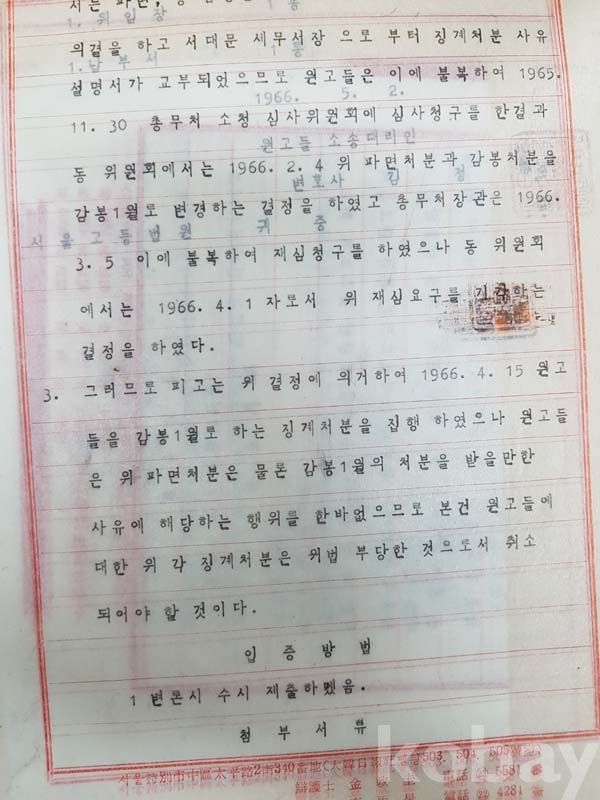 의결을 하고 서대문 세무서장 으로 부터 징계처분 사유
설명서가 교부되었으므로 원고들은 이에 불복하여 1965.
11. 30 총무처 소청 심사위원회에 심사청구를 한결과
동 위원회에서는 1966. 2. 4 위 파면처분과 감봉처분을
감봉1월로 변경하는 결정을 하였고 총무처장관은 1966.
3. 5 이에 불복하여 재심청구를 하였으나 동 위원회
에서는 1966. 4. 1 자로서 위 재심요구를 기각하는
결정을 하였다.
3. 그러므로 피고는 위 결정에 의거하여 1966. 4. 15 원고
들을 감봉1월로 하는 징계처분을 집행 하였으나 원고들
은 위 파면처분은 물론 감봉1월의 처분을 받을만한
사유에 해당하는 행위를 한바없으므로 본건 원고들에
대한 위 각 징계처분은 위법 부당한 것으로서 취소
되어야 할 것이다.
입 증 방 법
1 변론시 수시 제출하겠음.
첨 부 서 류
서울特別市中區太平路2街340番地(大韓日報
503. 504. 505
辯護士 金
電話 5581番
電話 4281番
kobay